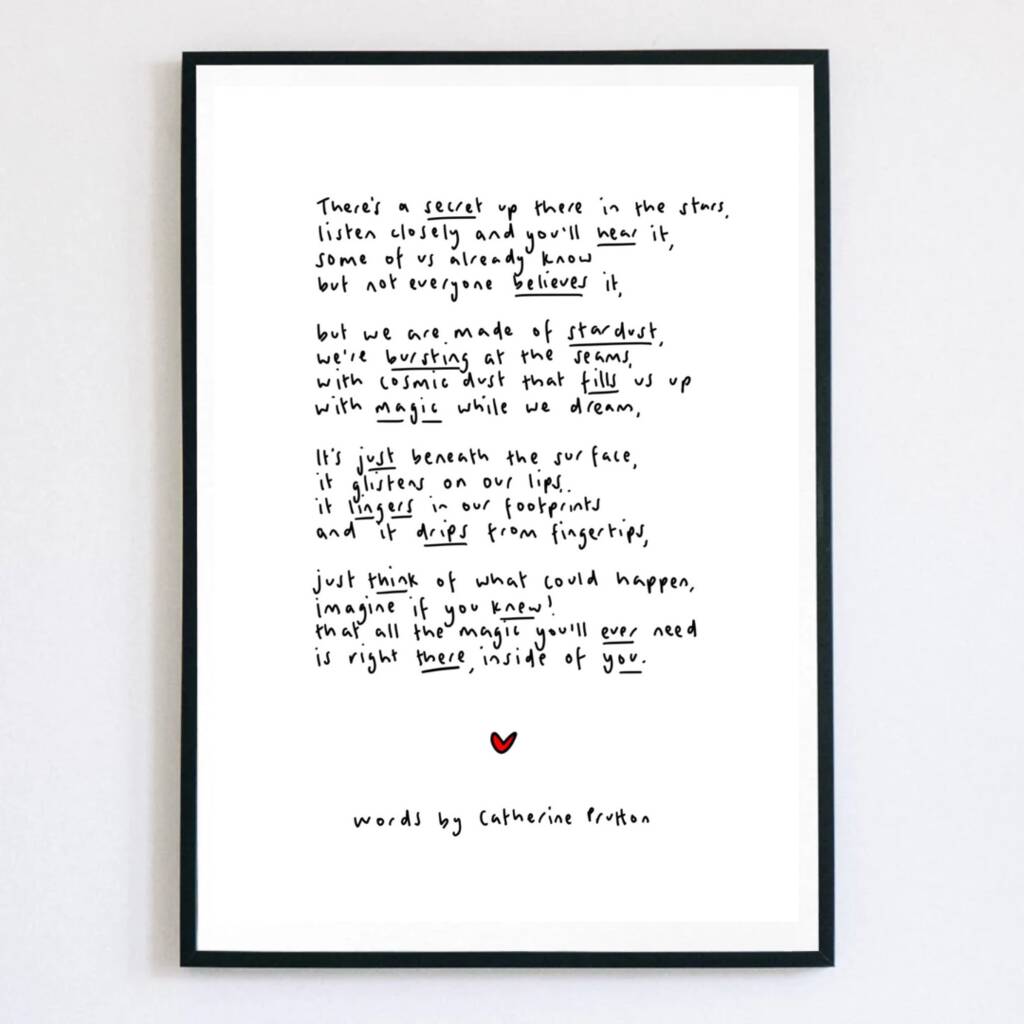 There's a secret up there in the stars,
listen closely and you'll hear it,
some of us already know
but not everyone believes it,
but we are made of stardust,
we're bursting at the seams,
with cosmic dust that fills us up
with magic while we dream,
It's just beneath the surface,
it glistens on our lips,
it lingers in our footprints
and it drips from fingertips,
just think of what could happen,
imagine if you knew!
that all the magic you'll ever need
is right there, inside of you.
words by Catherine Prutton